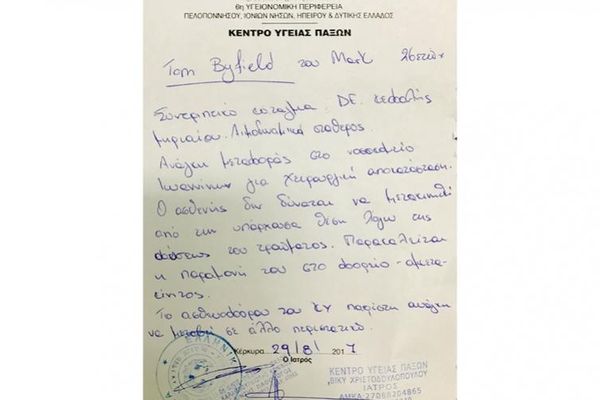 6η ΥΓΕΙΟΝΟΜΙΚΗ ΠΕΡΙΦΕΡΕΙΑ
ΠΕΛΟΠΟΝΝΗΣΟΥ, ΙΟΝΙΩΝ ΝΗΣΩΝ, ΗΠΕΙΡΟΥ & ΔΥΤΙΚΗΣ ΕΛΛΑΔΟΣ
ΚΕΝΤΡΟ ΥΓΕΙΑΣ ΠΑΞΩΝ
Tom Byfield του Mark 26ετών
Συντριπτικό κάταγμα ΔΕ. κεφαλής
μηριαίου. Αιμοδυναμικά σταθερός.
Ανάγκη μεταφοράς στο νοσοκομείο
Ιωαννίνων για χειρουργική αποκατάσταση.
Ο ασθενής δεν δύναται να μετακινηθεί
από την υπάρχουσα θέση λόγω της
φύσεως του τραύματος. Παρακαλείται
η παραμονή του στο φορείο - αμετα-
κίνητος.
Το ασθενοφόρο του ΚΥ Παξών ανάγκη
να μεταβεί σε άλλο περιστατικό.
Κέρκυρα 29/8/ 2017
Ο Ιατρός
ΚΕΝΤΡΟ ΥΓΕΙΑΣ ΠΑΞΩΝ
ΒΙΚΥ ΧΡΙΣΤΟΔΟΥΛΟΠΟΥΛΟΥ
ΙΑΤΡΟΣ
ΑΜΚΑ:27068204865